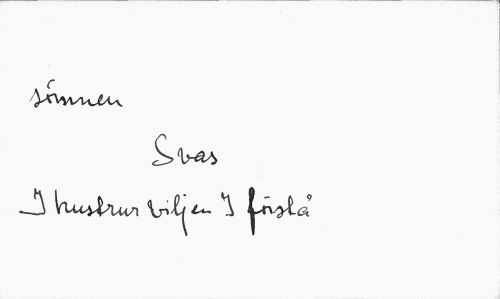 sömnen
Svas
I hustrur viljen I förstå